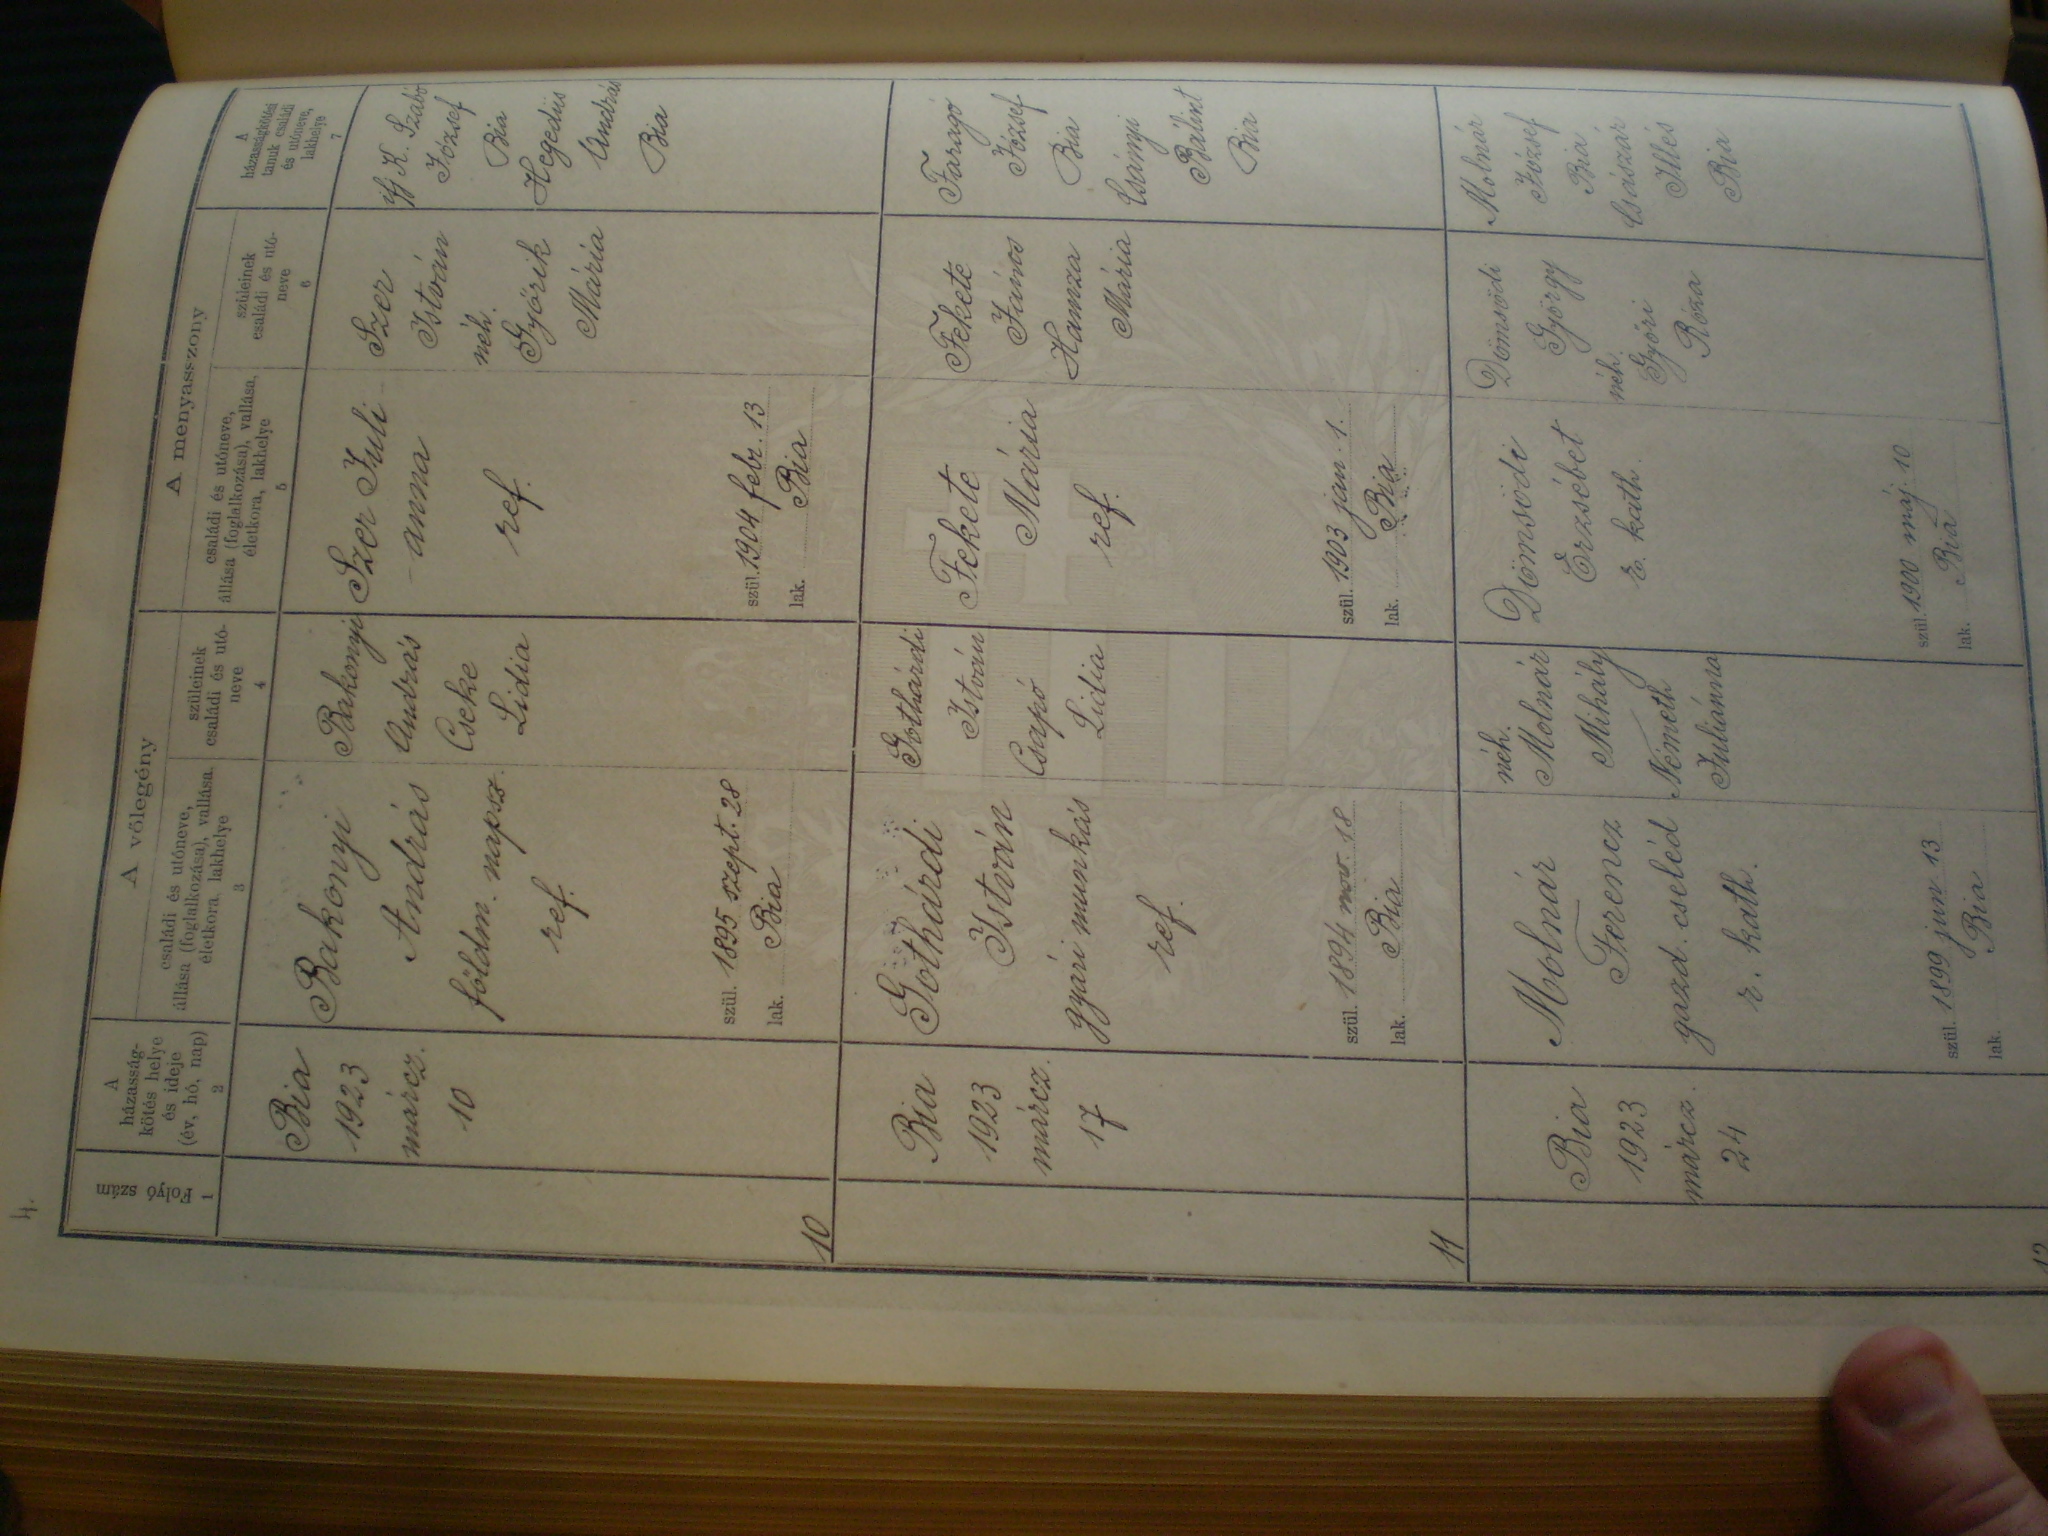 4.
A völegény
A menyasszony
Folyó szám
1
A
házasság-
kötés helye
és ideje
(év, hó, nap)
2
családi és utóneve,
állása (foglalkozása), vallása,
életkora, lakhelye
3
szüleinek
családi és utó-
neve
4
családi és utóneve,
állása (foglalkozása), vallása,
életkora, lakhelye
5
szüleinek
családi és utó-
neve
6
A
házasságkötési
tanuk családi
és utóneve,
lakhelye
7
10
Bia
1923
márcz.
10
Bakonyi
András
földm. napsz.
ref.
szül. 1895 szept. 28
lak. Bia
Bakonyi
András
Cseke
Lidia
Szer Juli
anna
ref.
szül. 1904 febr. 13
lak. Bia
Szer
István
néh.
Györik
Mária
ifj K. Szabó
József
Bia
Hegedüs
András
Bia
11
Bia
1923
márcz.
17
Gothárdi
István
gyári munkás
ref.
szül. 1894 nov. 18
lak. Bia
Gothárdi
István
Csapó
Lidia
Fekete
Mária
ref.
szül. 1903 jan. 1.
lak. Bia
Fekete
János
Hamza
Mária
Faragó
József
Bia
Csányi
Bálint
Bia
12
Bia
1923
márcz.
24
Molnár
Ferencz
gazd. cseléd
r. kath.
szül. 1899 jun 13
lak. Bia
néh.
Molnár
Mihály
Németh
Juliánna
Dömsödi
Erzsébet
r. kath.
szül. 1900 máj. 10
lak. Bia
Dömsödi
György
néh.
Györi
Róza
Molnár
József
Bia
Császár
Illés
Bia